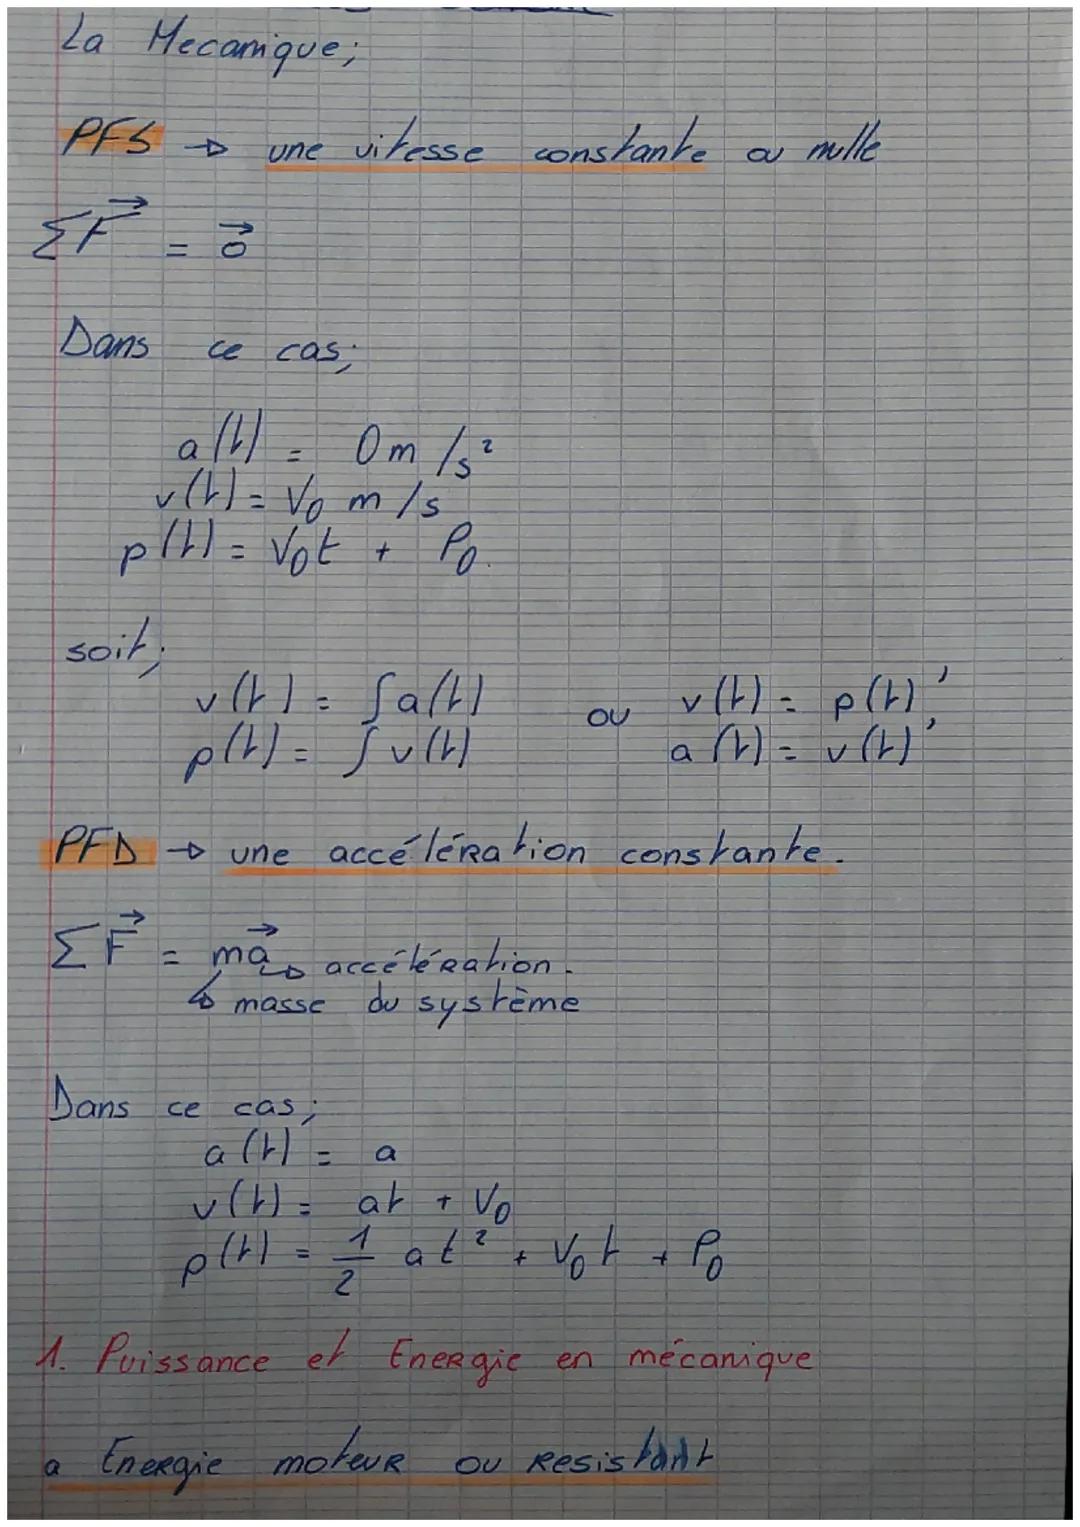 La Mecanique;
PFS → une vitesse constante ou nulle
ΣF⃗ = 0⃗
Dans ce cas;
a(t) = 0 m/s²
v(t) = V₀ m/s
p(t) = V₀t + P₀.
soit;
v(t) = ∫a(t) ou v(t) = p(t)'
p(t) = ∫v(t) a(t) = v(t)'
PFD → une accélération constante.
ΣF⃗ = ma⃗ ↳ accélération.
↳ masse du système
Dans ce cas;
a(t) = a
v(t) = at + V₀
p(t) = 1/2 at² + V₀t + P₀
1. Puissance et Energie en mécanique
a Energie moteur ou Resistant